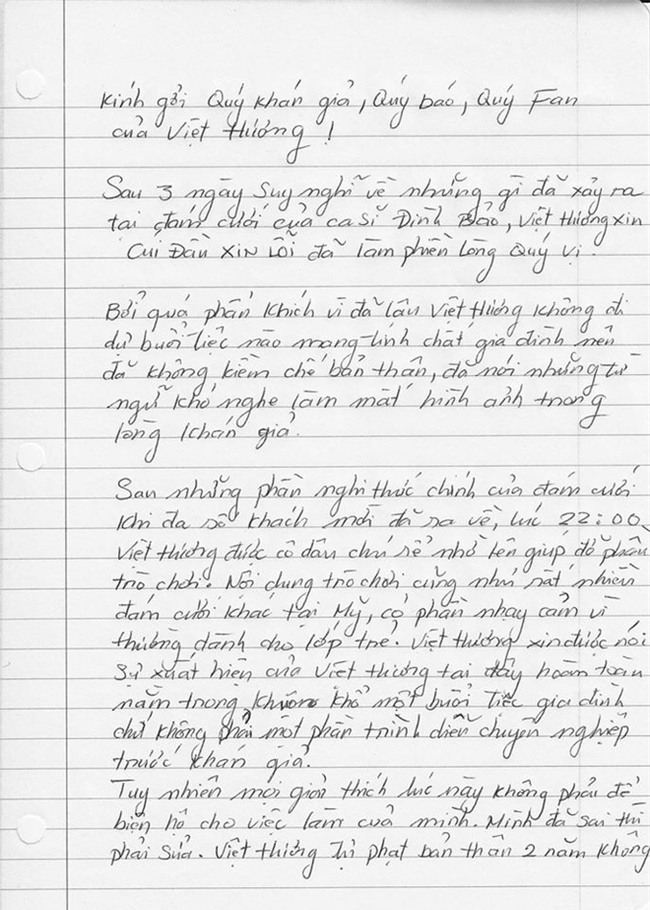 Kính gởi Quý khán giả, Quý báo, Quý Fan
của Việt Hương !
Sau 3 ngày suy nghĩ về những gì đã xảy ra
tại đám cưới của ca sĩ Đinh Bảo, Việt Hương xin
CUI ĐẦU XIN LỖI đã làm phiền lòng Quý vị.
Bởi quá phấn khích vì đã lâu Việt Hương không đi
dự buổi tiệc nào mang tính chất gia đình nên
đã không kiềm chế bản thân, đã nói những từ
ngữ khó nghe làm mất hình ảnh trong
lòng khán giả.
Sau những phần nghi thức chính của đám cưới
khi đa số khách mời đã ra về, lúc 22:00
Việt Hương được cô dâu chú rể nhờ lên giúp đỡ phần
trò chơi. Nội dung trò chơi cũng như rất nhiều
đám cưới khác tại Mỹ, có phần nhạy cảm vì
thường dành cho lớp trẻ. Việt Hương xin được nói
sự xuất hiện của Việt Hương tại đây hoàn toàn
nằm trong khuôn khổ một buổi tiệc gia đình
chứ không phải một phần trình diễn chuyên nghiệp
trước khán giả.
Tuy nhiên mọi giải thích lúc này không phải để
biện hộ cho việc làm của mình. Mình đã sai thì
phải sửa. Việt Hương tự phạt bản thân 2 năm không